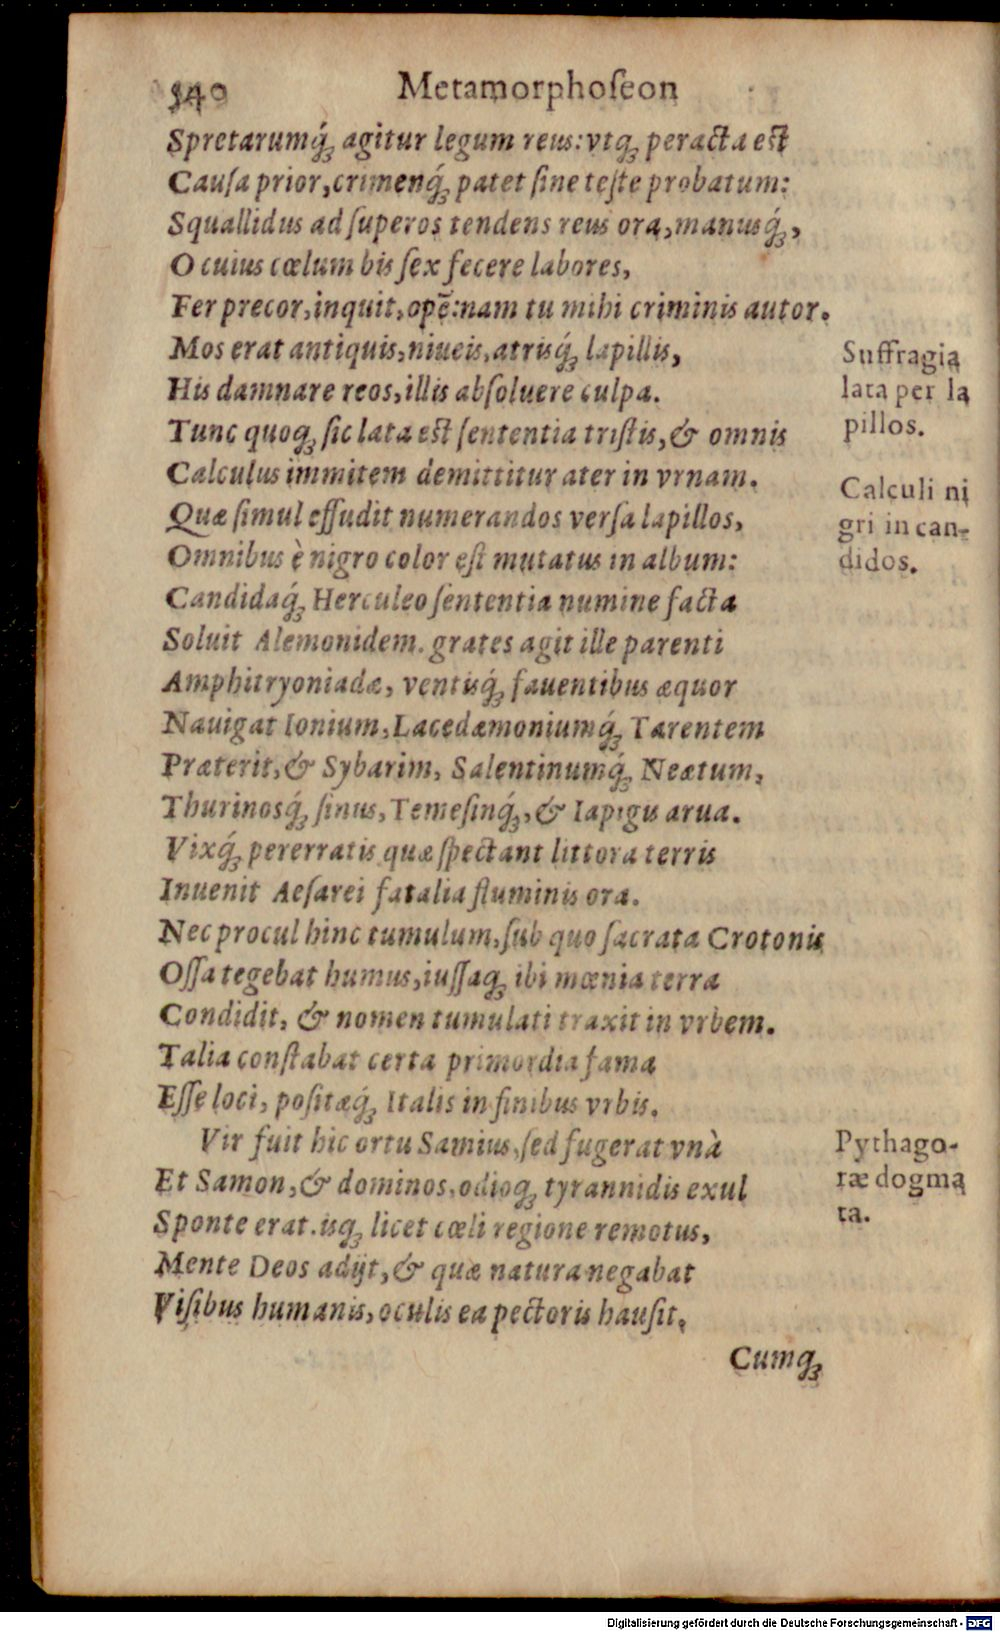 340 Metamorphoſeon
Spretarumq́ꝫ agitur legum reus: vtqꝫ peracta est
Cauſa prior, crimenq́ꝫ patet ſine teſte probatum:
Squallidus ad ſuperos tendens reus ora, manusq́ꝫ,
O cuius cœlum bis ſex fecere labores,
Fer precor, inquit, opē: nam tu mihi criminis autor.
Mos erat antiquis, niueis, atrisq́ꝫ lapillis,
His damnare reos, illis abſoluere culpa.
Tunc quoqꝫ ſic lata est ſententia triſtis, & omnis
Calculus immitem demittitur ater in vrnam.
Quæ ſimul effudit numerandos verſa lapillos,
Omnibus è nigro color eſt mutatus in album:
Candidaq́ꝫ Herculeo ſententia numine facta
Soluit Alemonidem. grates agit ille parenti
Amphitryoniadæ, ventisq́ꝫ fauentibus æquor
Nauigat Ionium, Lacedæmoniumq́ꝫ Tarentem
Præterit, & Sybarim, Salentinumq́ꝫ Neætum,
Thurinosq́ꝫ ſinus, Temeſinq́ꝫ, & Iapigis arua.
Vixq́ꝫ pererratis quæ ſpectant littora terris
Inuenit Aeſarei fatalia fluminis ora.
Nec procul hinc tumulum, ſub quo ſacrata Crotonis
Oſſa tegebat humus, iuſſaqꝫ ibi mœnia terra
Condidit, & nomen tumulati traxit in vrbem.
Talia conſtabat certa primordia fama
Eſſe loci, poſitæq́ꝫ Italis in finibus vrbis.
Vir fuit hic ortu Samius, ſed fugerat vnà
Et Samon, & dominos, odioqꝫ tyrannidis exul
Sponte erat. isqꝫ licet cœli regione remotus,
Mente Deos adijt, & quæ natura negabat
Viſibus humanis, oculis ea pectoris hauſit.
Cumqꝫ
Suffragia
lata per la
pillos.
Calculi ni
gri in can-
didos.
Pythago-
ræ dogma
ta.
Digitalisierung gefördert durch die Deutsche Forschungsgemeinschaft - DFG